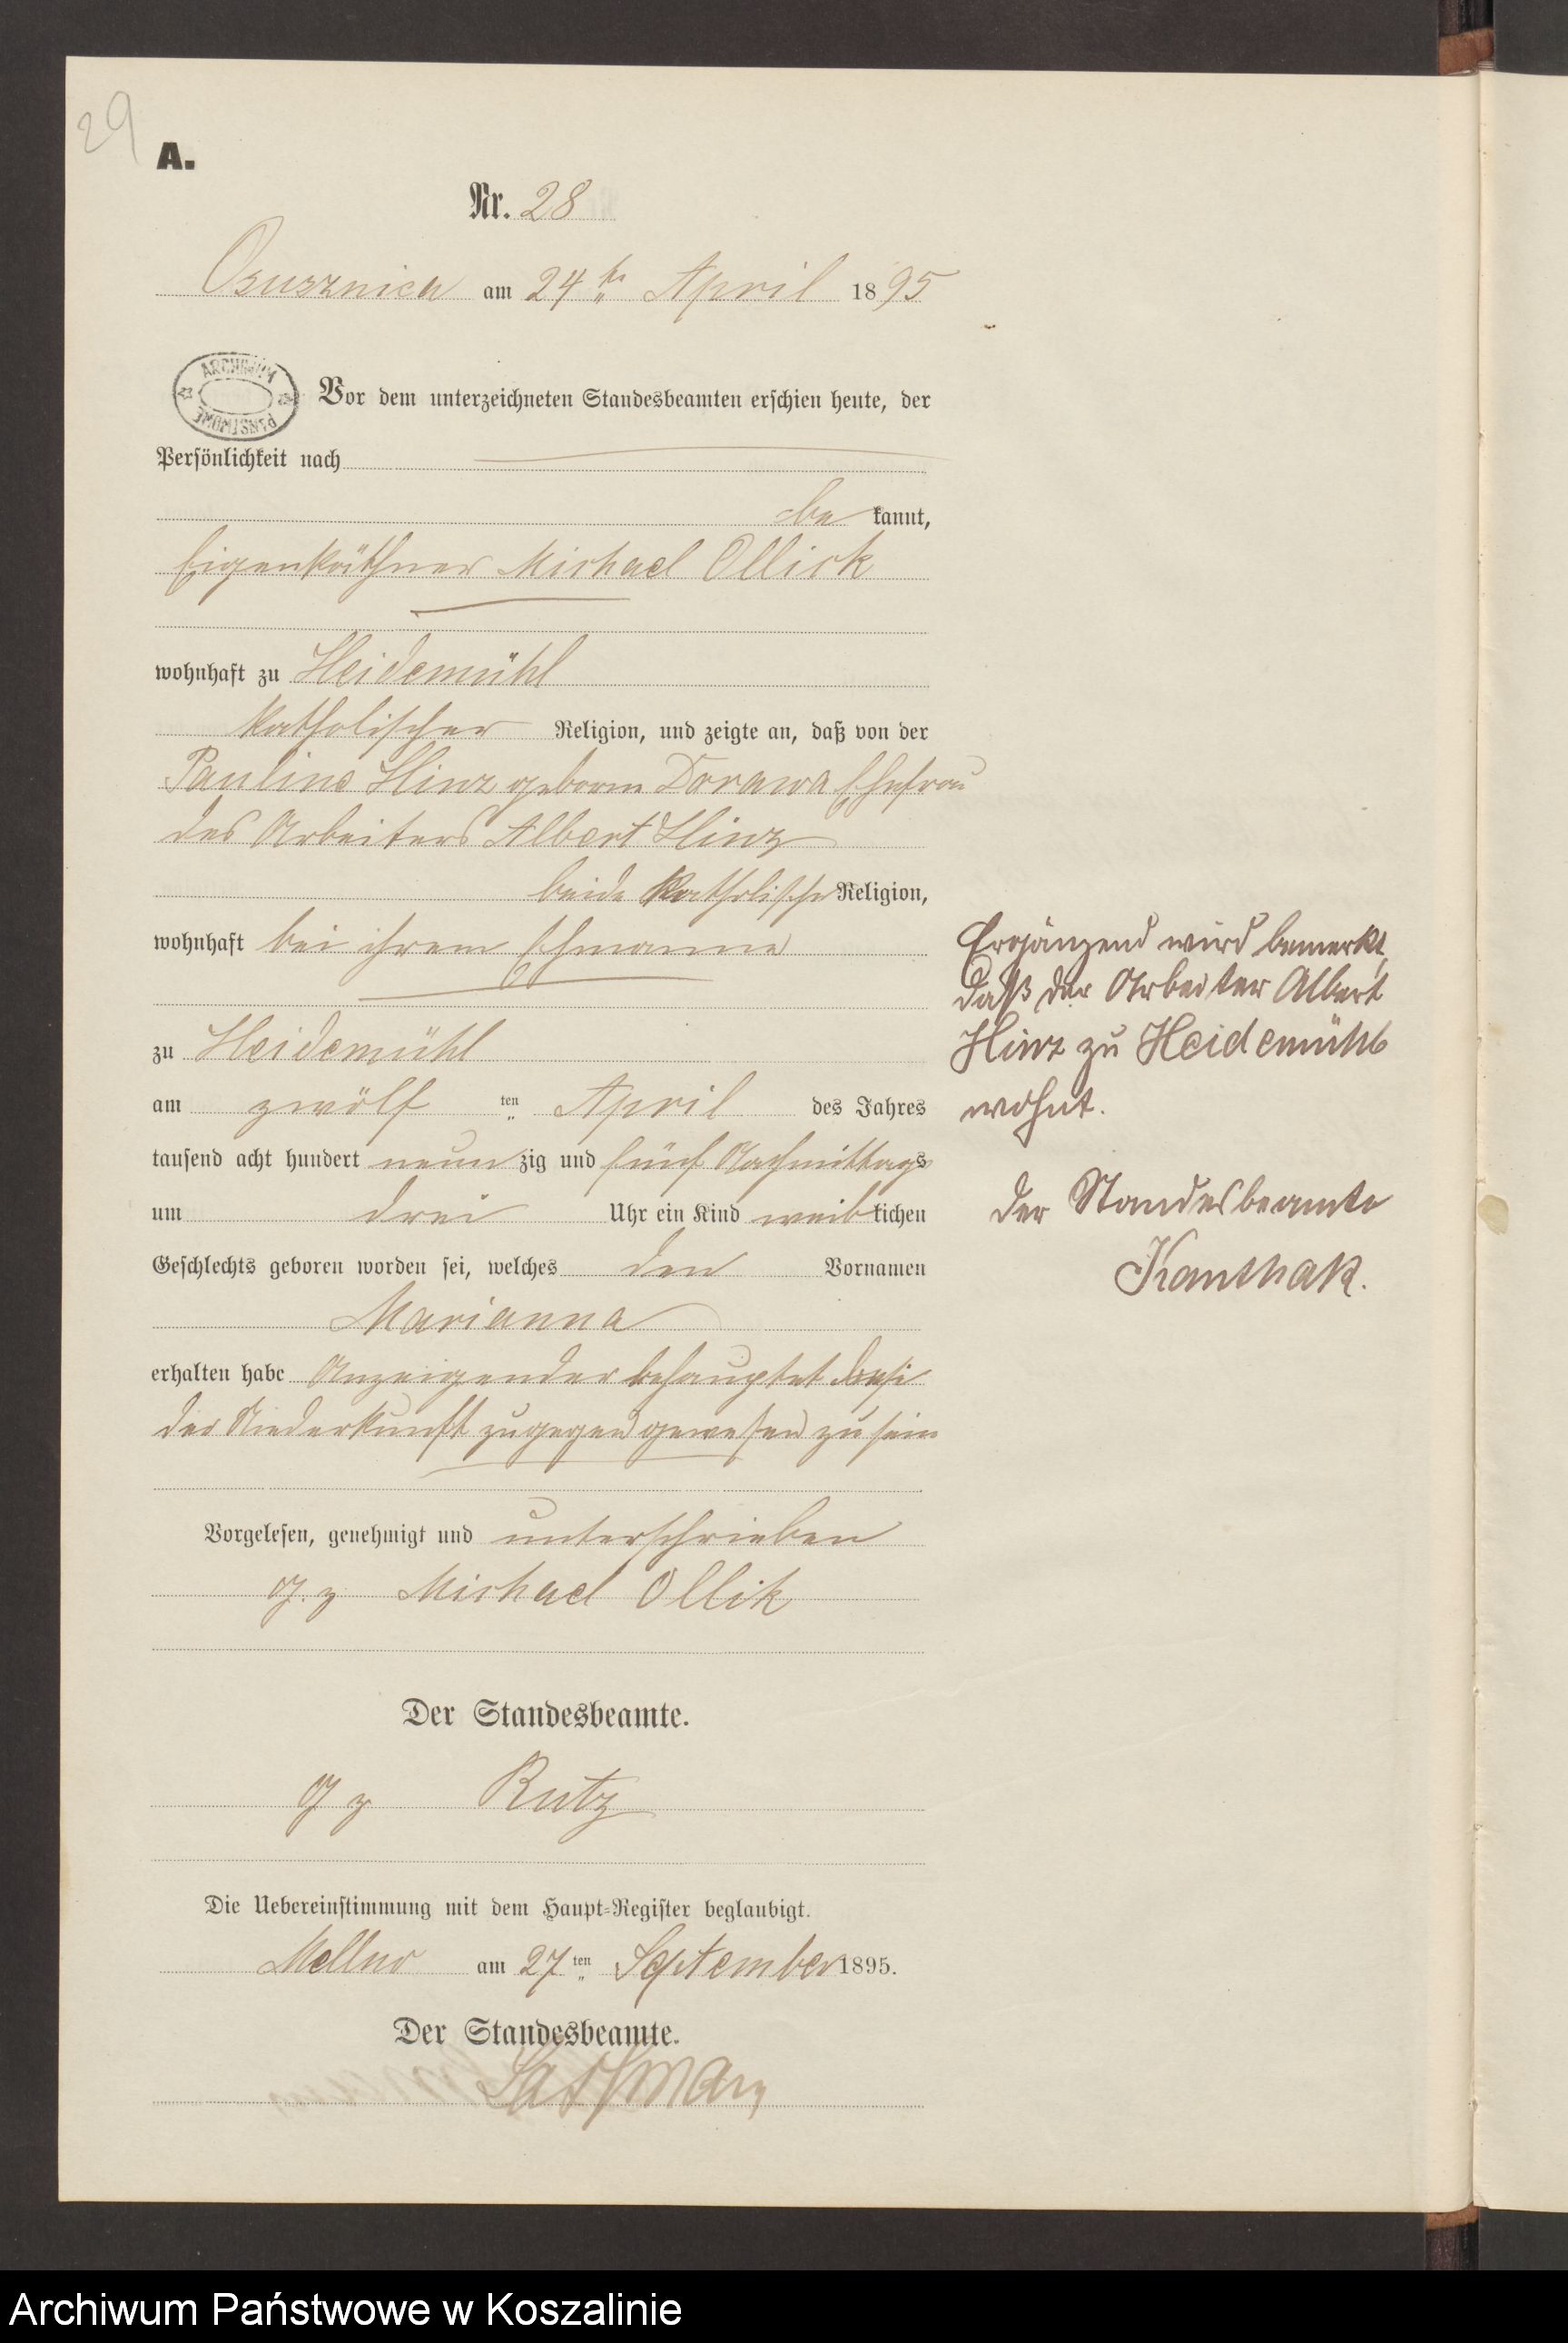 29
A.
Nr. 28
Osusznica am 24ten April 1895
ARCHIWUM PAŃSTWOWE
Vor dem unterzeichneten Standesbeamten erschien heute, der
Persönlichkeit nach
be kannt,
Eigenkäthner Michael Ollick
wohnhaft zu Heidemühl
katholischer Religion, und zeigte an, daß von der
Pauline Hinz geborne Dorawa Ehefrau
des Arbeiters Albert Hinz
beide katholische Religion,
wohnhaft bei ihrem Ehmanne
zu Heidemühl
am zwölf ten April des Jahres
tausend acht hundert neun zig und fünf Nachmittags
um drei Uhr ein Kind weiblichen
Geschlechts geboren worden sei, welches den Vornamen
Marianna
erhalten habe Anzeigender behauptet bei
der Niederkunft zugegen gewesen zu sein
Vorgelesen, genehmigt und unterschrieben
gz Michael Ollik
Der Standesbeamte.
gz Rutz
Die Uebereinstimmung mit dem Haupt-Register beglaubigt.
Mellno am 27ten September 1895.
Der Standesbeamte.
Ergänzend wird bemerkt,
daß der Arbeiter Albert
Hinz zu Heidemühl
wohnt.
Der Standesbeamte
Kanthak.
Archiwum Państwowe w Koszalinie